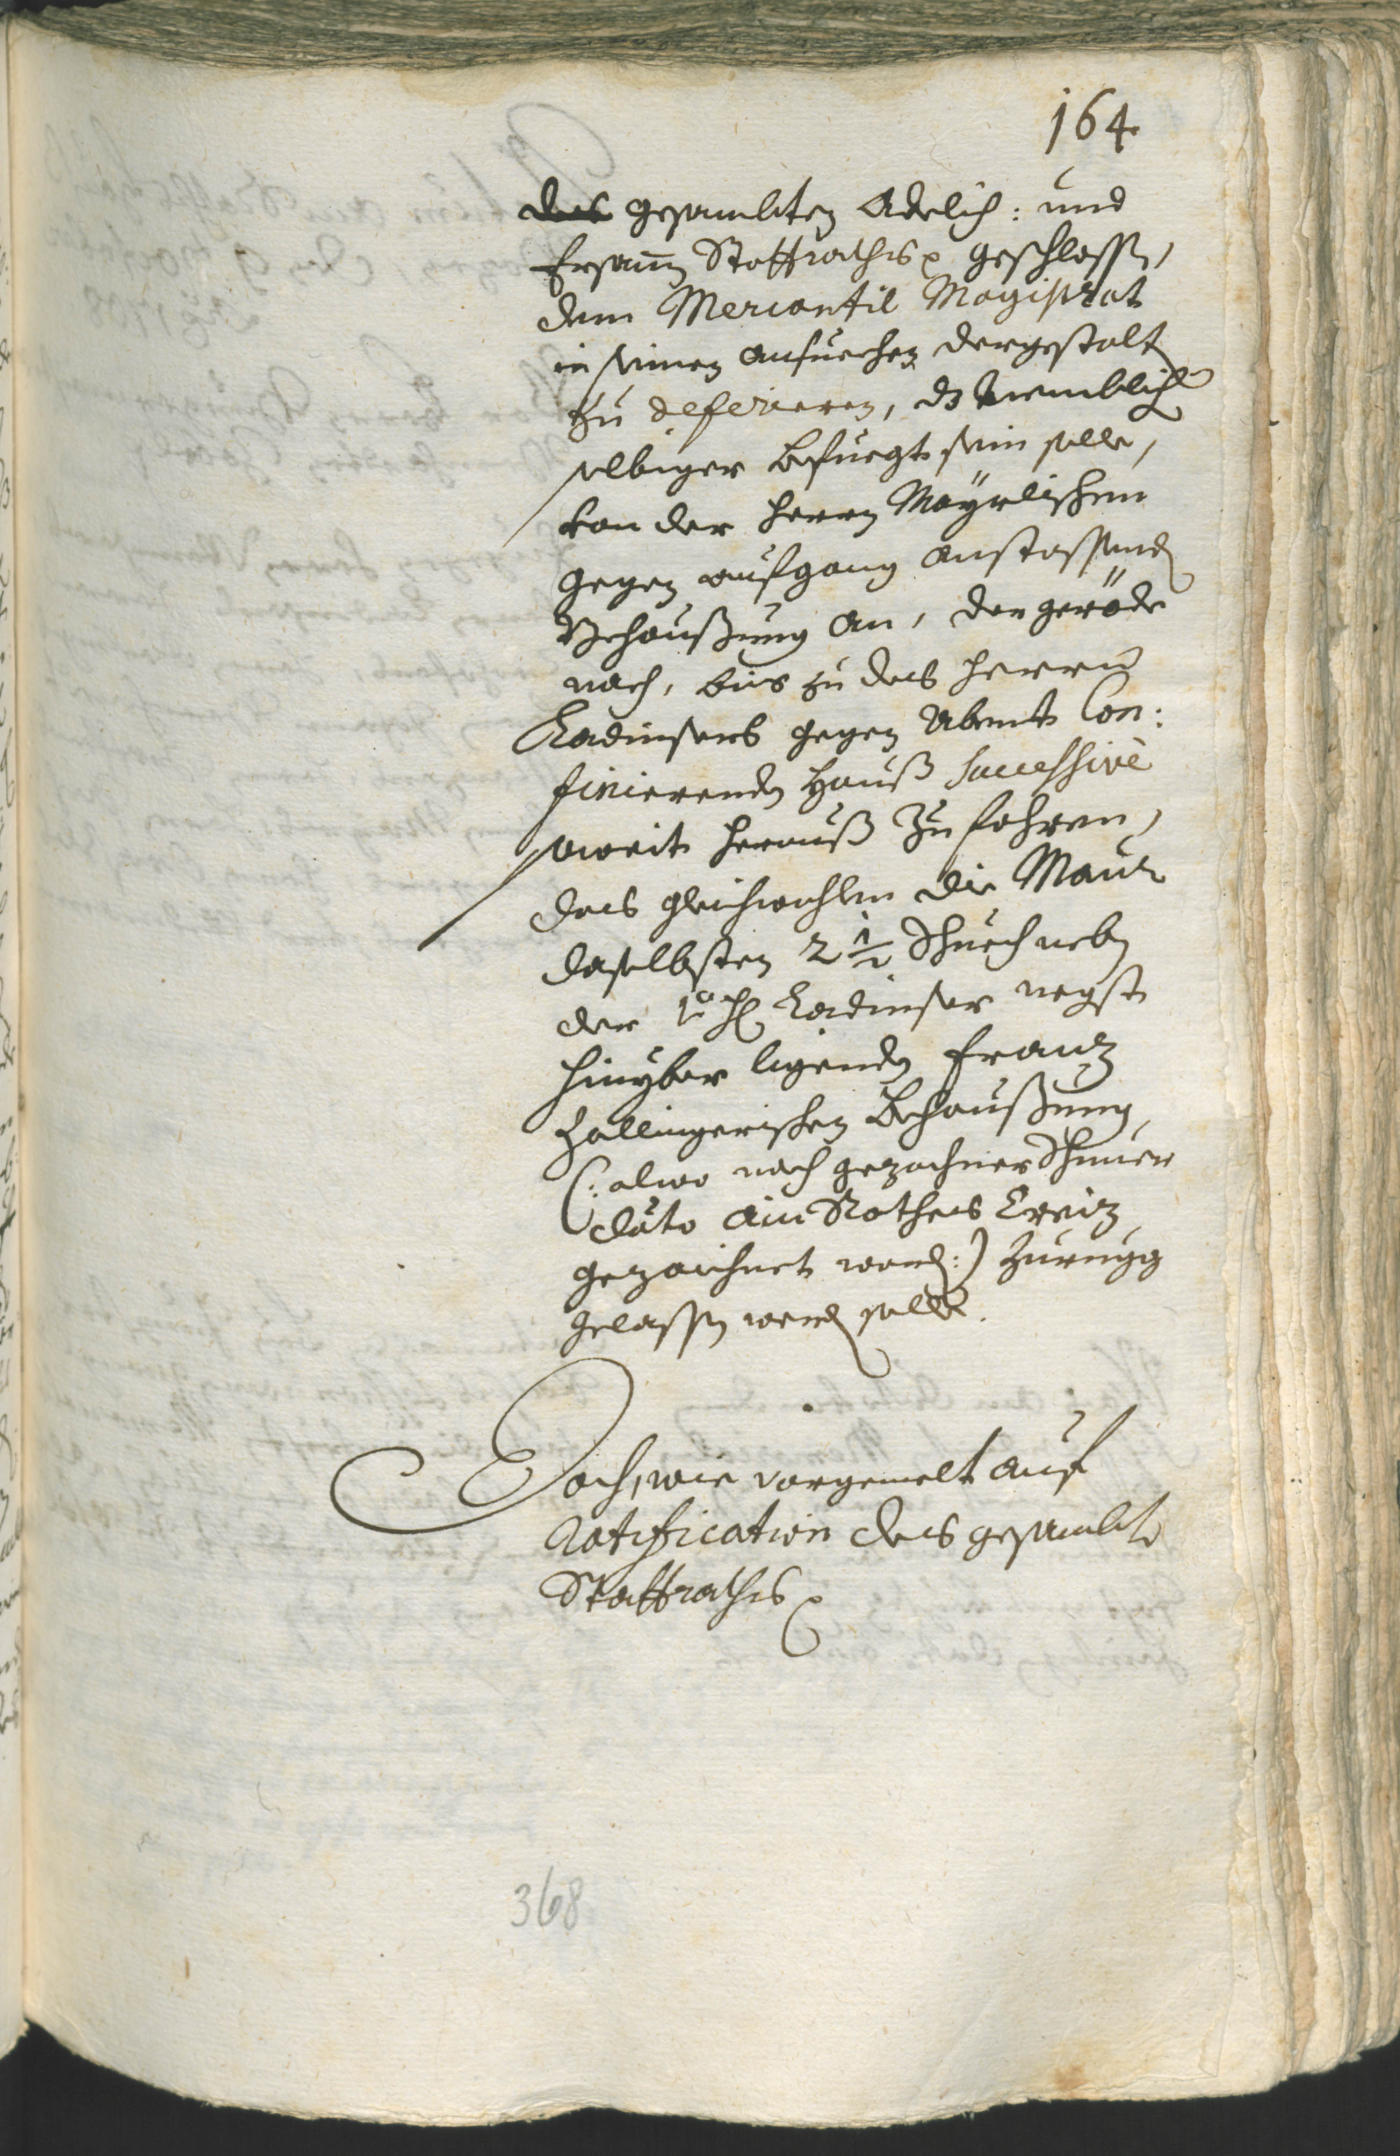 164
des gesambten Adelich: und
Ersamen Stattraths geschlossen,
dem Mercantil Magistrat
in seinen ansuechen dergestalt
zu deferieren, dz nemblich
selbiger befuegt sein solle,
von der herrn Mayrlischen
gegen aufgang anstossend
Behaußung an, der geröde
nach, bis zu des herrn
Ladinsers gegen Abent Con:
finierenden Hauß successivè
soweit herauß zufahren,
das gleichwohlen die Maur
daselbsten 2 1/2 Schuech neben
der H Ladinser negst
hinyber ligenden Franz
Zallingerischen Behaußung
(: alwo nach gezochner Schnuer
dato ain Rothes Creiz
gezaichnet word :) zurugg
gelassen werd solle.
Doch, wie vorgemelt auf
Ratification des gesambt
Stattraths
368